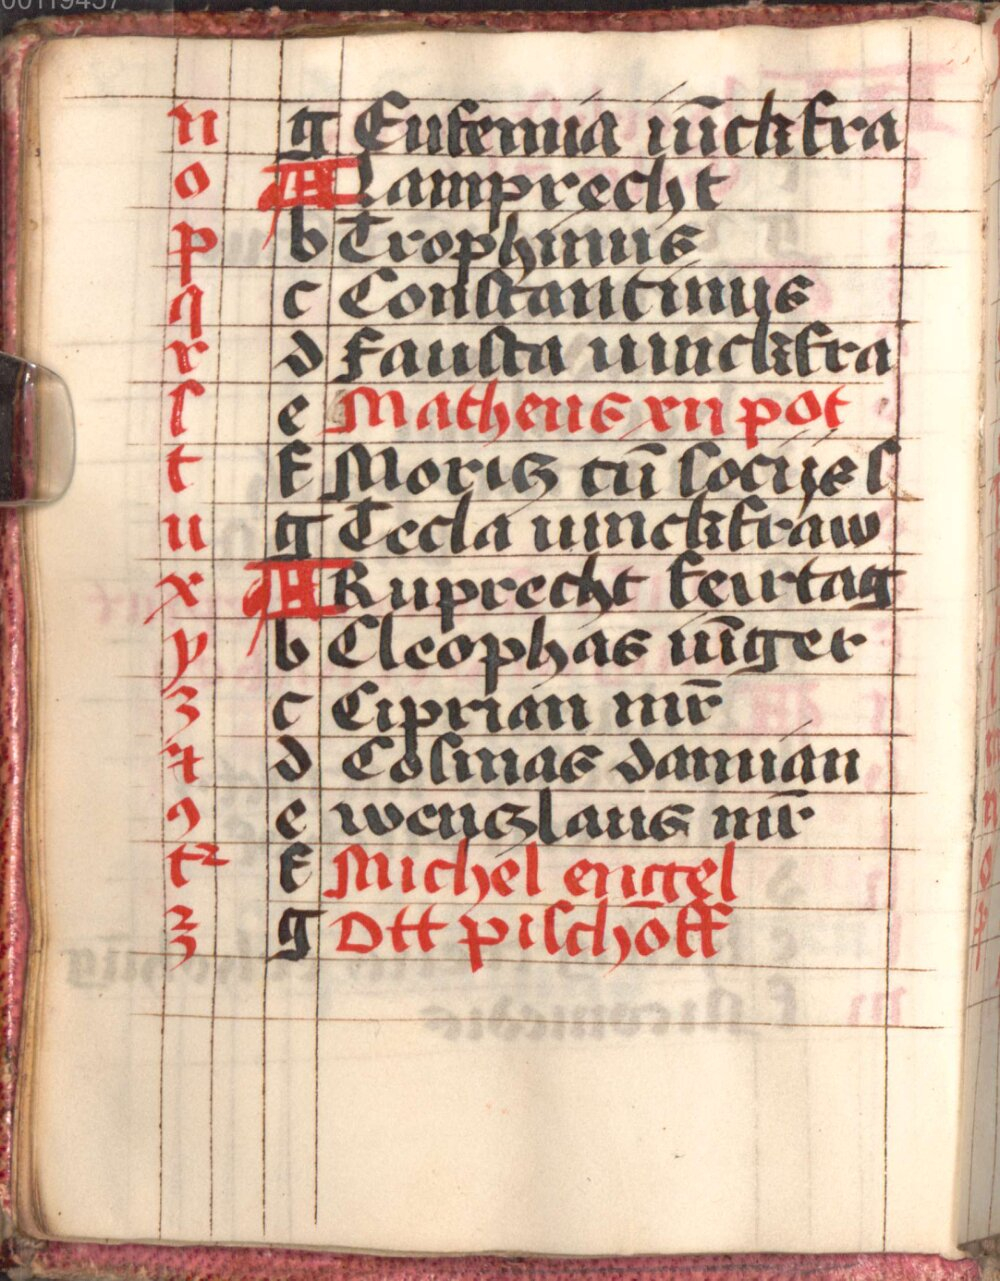 00119457
n g Eufemia iūckfra
o A Lamprecht
p b Trophimus
q c Constantinus
r d Fausta iunckfra
ſ e Matheus xii pot
t f Moritz cū ſocijs
u g Tecla iunckfraw
x A Ruprecht feirtag
y b Cleophas iūger
z c Ciprian mr̄
d Coſmas damian
9 e wenczlaus mr̄
f Michel engel
g Ott piſchoff